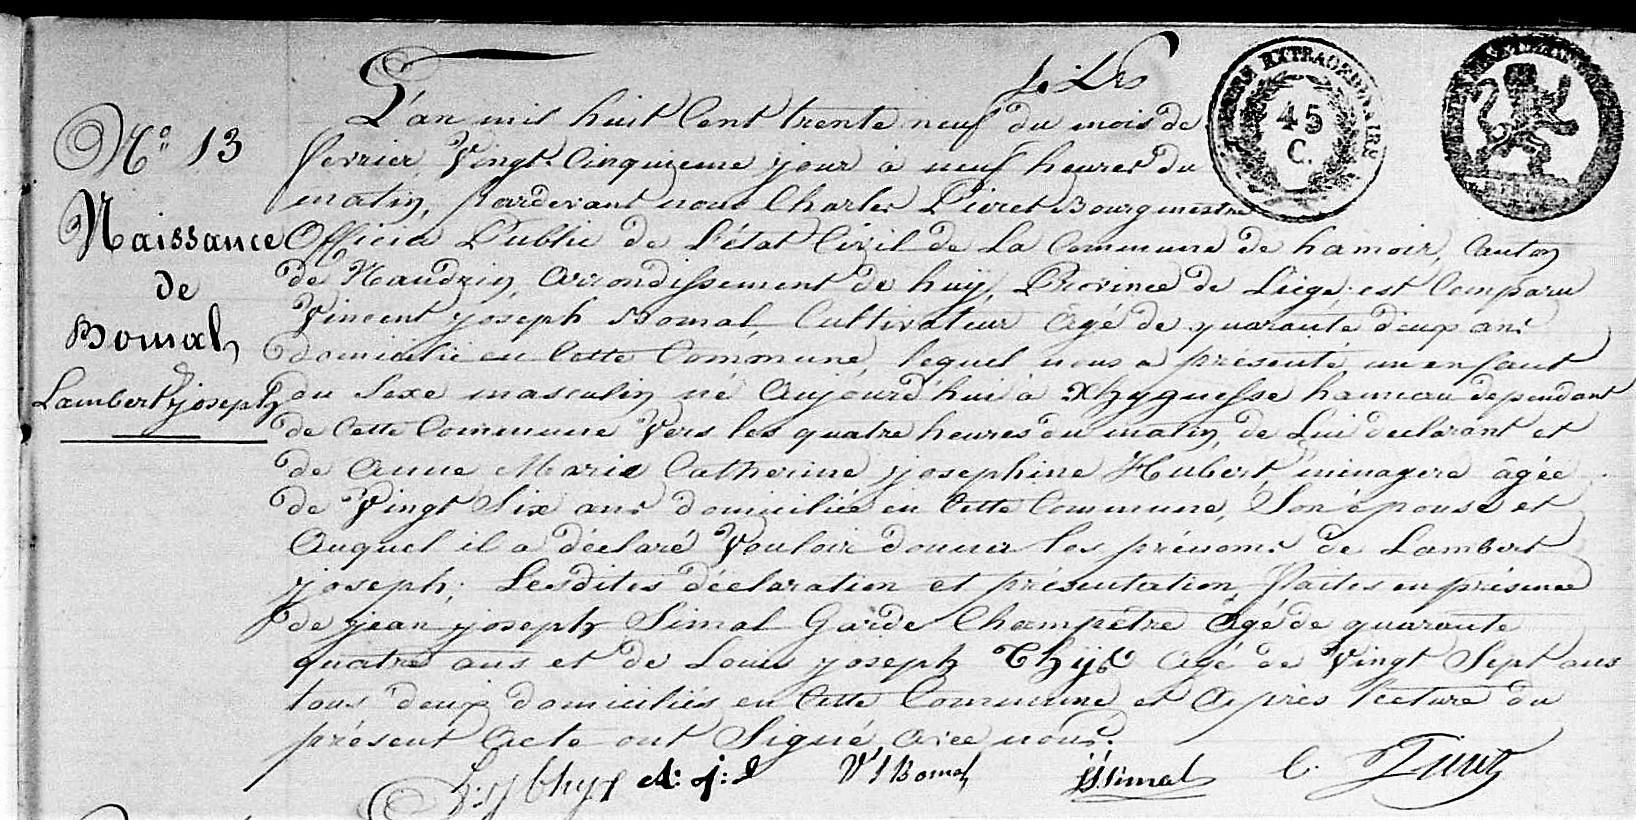 N° 13
Naissance
de
Bomal
Lambert joseph
L'an mil huit Cent trente neuf du mois de
fevrier, Vingt Cinquieme jour à neuf heures du
matin, pardevant nous Charles Pivret Bourgmestre
Officier Public de L'état Civil de La Commune de hamoir, Canton
de Nandrin, arrondissement de huy, Province de Liege, est Comparu
Vincent joseph Bomal, Cultivateur âgé de quarante deux ans
domicilié en Cette Commune, lequel nous a présenté un enfant
du Sexe masculin né Aujourd'hui à Xhygnesse hameau dependant
de Cette Commune Vers les quatre heures du matin, de Lui declarant et
de Anne Marie Catherine josephine Hubert ménagere âgée
de Vingt Six ans domiciliée en Cette Commune, Son épouse et
Auquel il a déclaré Vouloir donner les prénoms de Lambert
joseph; Lesdites déclaration et présentation, faites en présence
de jean joseph Simal Garde Champêtre Agé de quarante
quatre ans et de Louis joseph Thijs Agé de Vingt Sept ans
tous deux domiciliés en Cette Commune et Après lecture du
présent Acte ont Signé avec nous.
V J Bomal
JJ Simal
C.
45
C.